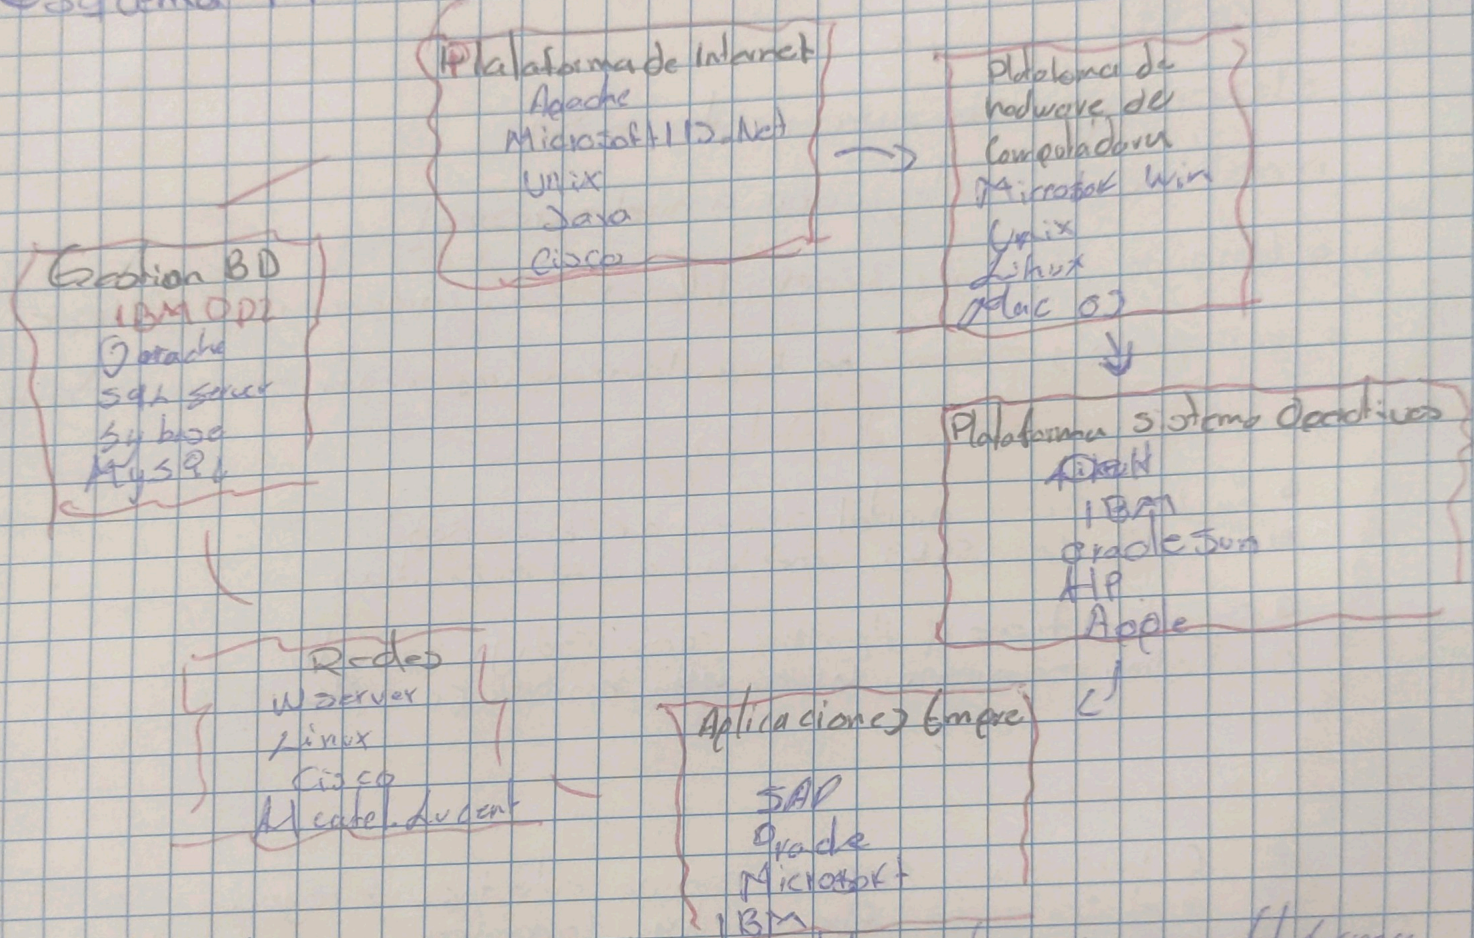 Esquema
Plataforma de Internet
Apache
Microsoft IIS .Net
Unix
Java
Cisco
Plataforma de
hadware de
Computadora
Microsof Win
Unix
Linux
Mac OS
Gestion BD
IBM DB2
SQL Server
Sybase
MySQL
Plataforma Sistema Operativos
IBM
Oracle Sun
HP
Apple
Redes
W server
Linux
Cisco
Alcatel-Lucent
Aplicaciones Empre
SAP
Oracle
Microsoft
IBM